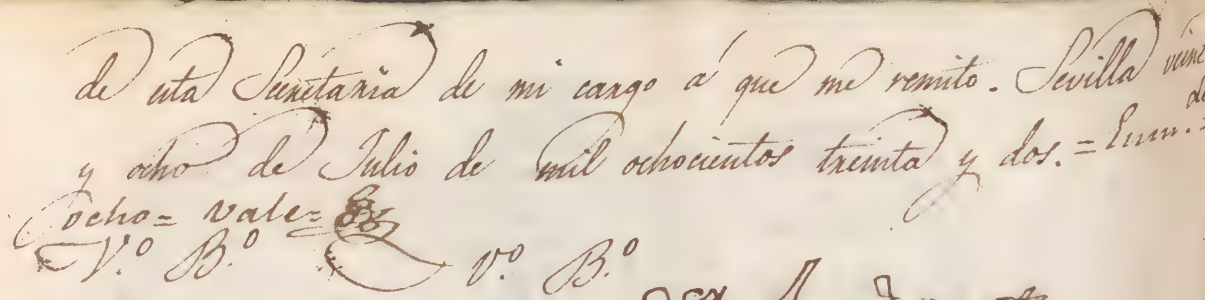 de esta Secretaria de mi cargo á que me remito. Sevilla veinte
y ocho de Julio de mil ochocientos treinta y dos. = Enm.do =
ocho = vale =
V.º B.º V.º B.º